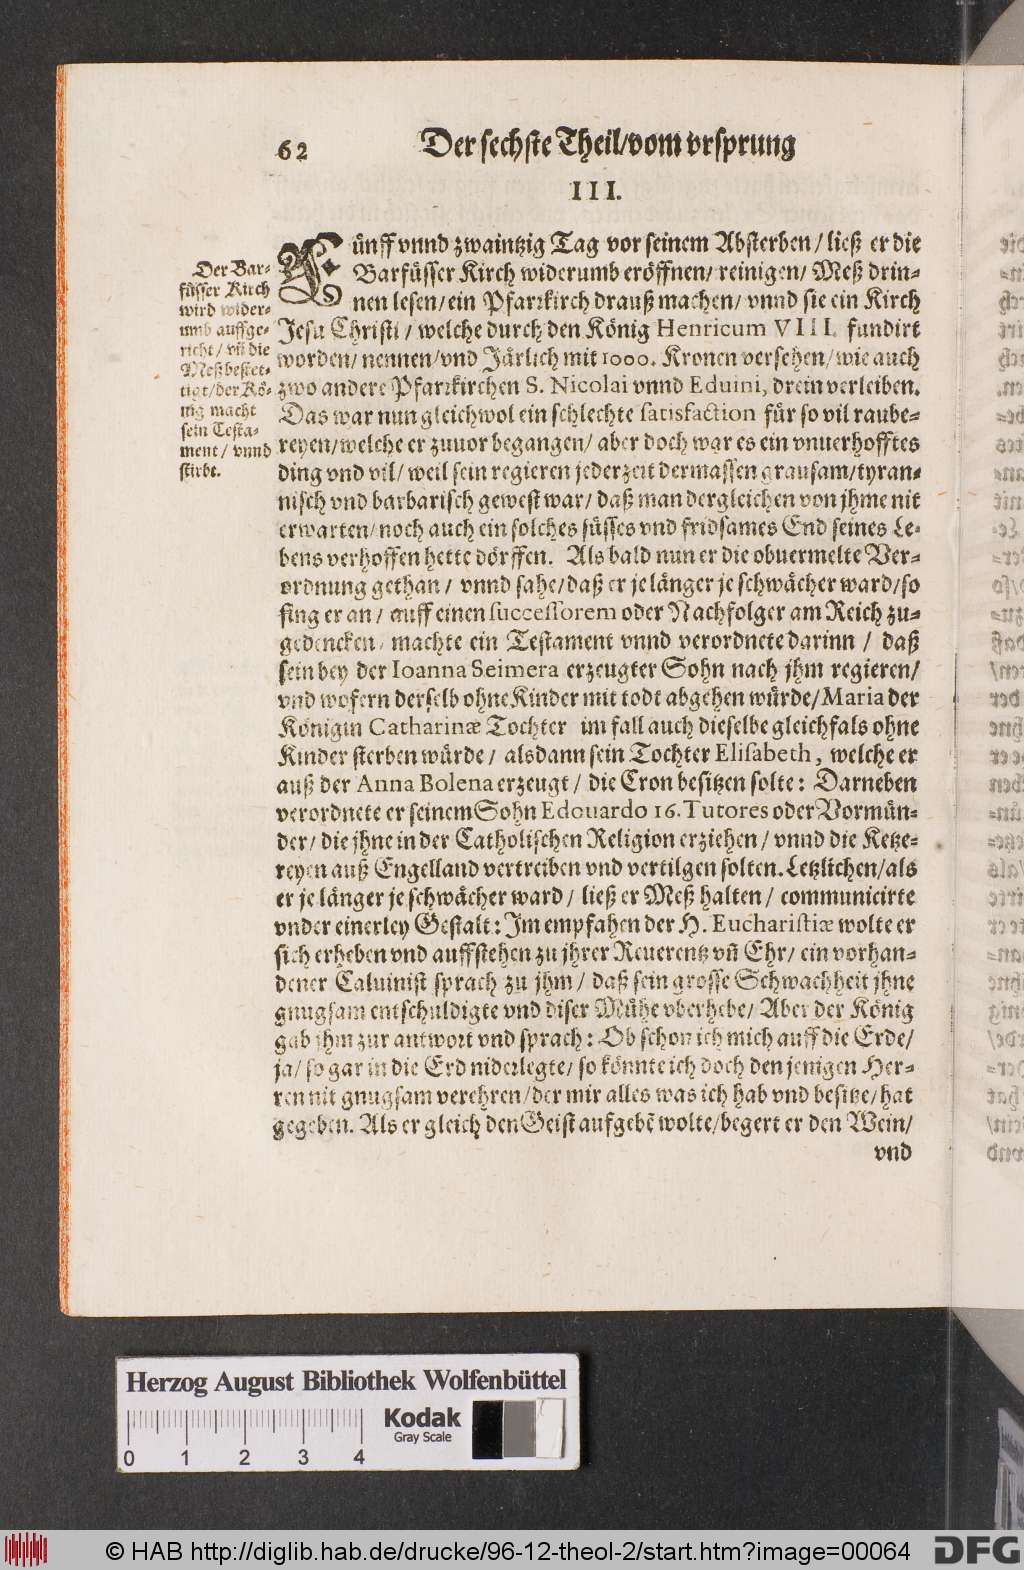 62 Der sechste Theil/vom vrsprung
III.
Fünff vnnd zwaintzig Tag vor seinem Absterben/ ließ er die
Barfüsser Kirch widerumb eröffnen/ reinigen/ Meß drin-
nen lesen/ein Pfarrkirch drauß machen/ vnnd sie ein Kirch
Jesu Christi/ welche durch den König Henricum VIII. fundirt
worden/ nennen/vnd Järlich mit 1000. Kronen versehen/wie auch
zwo andere Pfarrkirchen S. Nicolai vnnd Eduini, drein verleiben.
Das war nun gleichwol ein schlechte satisfaction für so vil raube-
reyen/welche er zuuor begangen/ aber doch war es ein vnuerhofftes
ding vnd vil/ weil sein regieren jederzeit dermassen grausam/tyran-
nisch vnd barbarisch gewest war/ daß man dergleichen von jhme nit
erwarten/noch auch ein solches süsses vnd fridsames End seines Le-
bens verhoffen hette dörffen. Als bald nun er die obuermelte Ver-
ordnung gethan/ vnnd sahe/daß er je länger je schwächer ward/so
fing er an/ auff einen successorem oder Nachfolger am Reich zu-
gedencken/ machte ein Testament vnnd verordnete darinn/ daß
sein bey der Ioanna Seimera erzeugter Sohn nach jhm regieren/
vnd wofern derselb ohne Kinder mit todt abgehen würde/Maria der
Königin Catharinæ Tochter im fall auch dieselbe gleichfals ohne
Kinder sterben würde/ alsdann sein Tochter Elisabeth, welche er
auß der Anna Bolena erzeugt/ die Cron besitzen solte: Darneben
verordnete er seinem Sohn Edouardo 16. Tutores oder Vormün-
der/ die jhne in der Catholischen Religion erziehen/ vnnd die Ketze-
reyen auß Engelland vertreiben vnd vertilgen solten. Letzlichen/als
er je länger je schwächer ward/ ließ er Meß halten/ communicirte
vnder einerley Gestalt: Im empfahen der H. Eucharistiæ wolte er
sich erheben vnd auffstehen zu jhrer Reuerentz vñ Ehr/ ein vorhan-
dener Caluinist sprach zu jhm/ daß sein grosse Schwachheit jhne
gnugsam entschuldigte vnd diser Mühe vberhebe/ Aber der König
gab jhm zur antwort vnd sprach: Ob schon ich mich auff die Erde/
ja/ so gar in die Erd niderlegte/ so könnte ich doch den jenigen Her-
ren nit gnugsam verehren/der mir alles was ich hab vnd besitze/hat
gegeben. Als er gleich den Geist aufgebẽ wolte/begert er den Wein/
vnd
Der Bar-
füsser Kirch
wird wider-
umb auffge-
richt/ vñ die
Meß bestet-
tigt/der Kö-
nig macht
sein Testa-
ment/ vnnd
stirbt.
Herzog August Bibliothek Wolfenbüttel
Kodak
Gray Scale
0 1 2 3 4
© HAB http://diglib.hab.de/drucke/96-12-theol-2/start.htm?image=00064
DFG